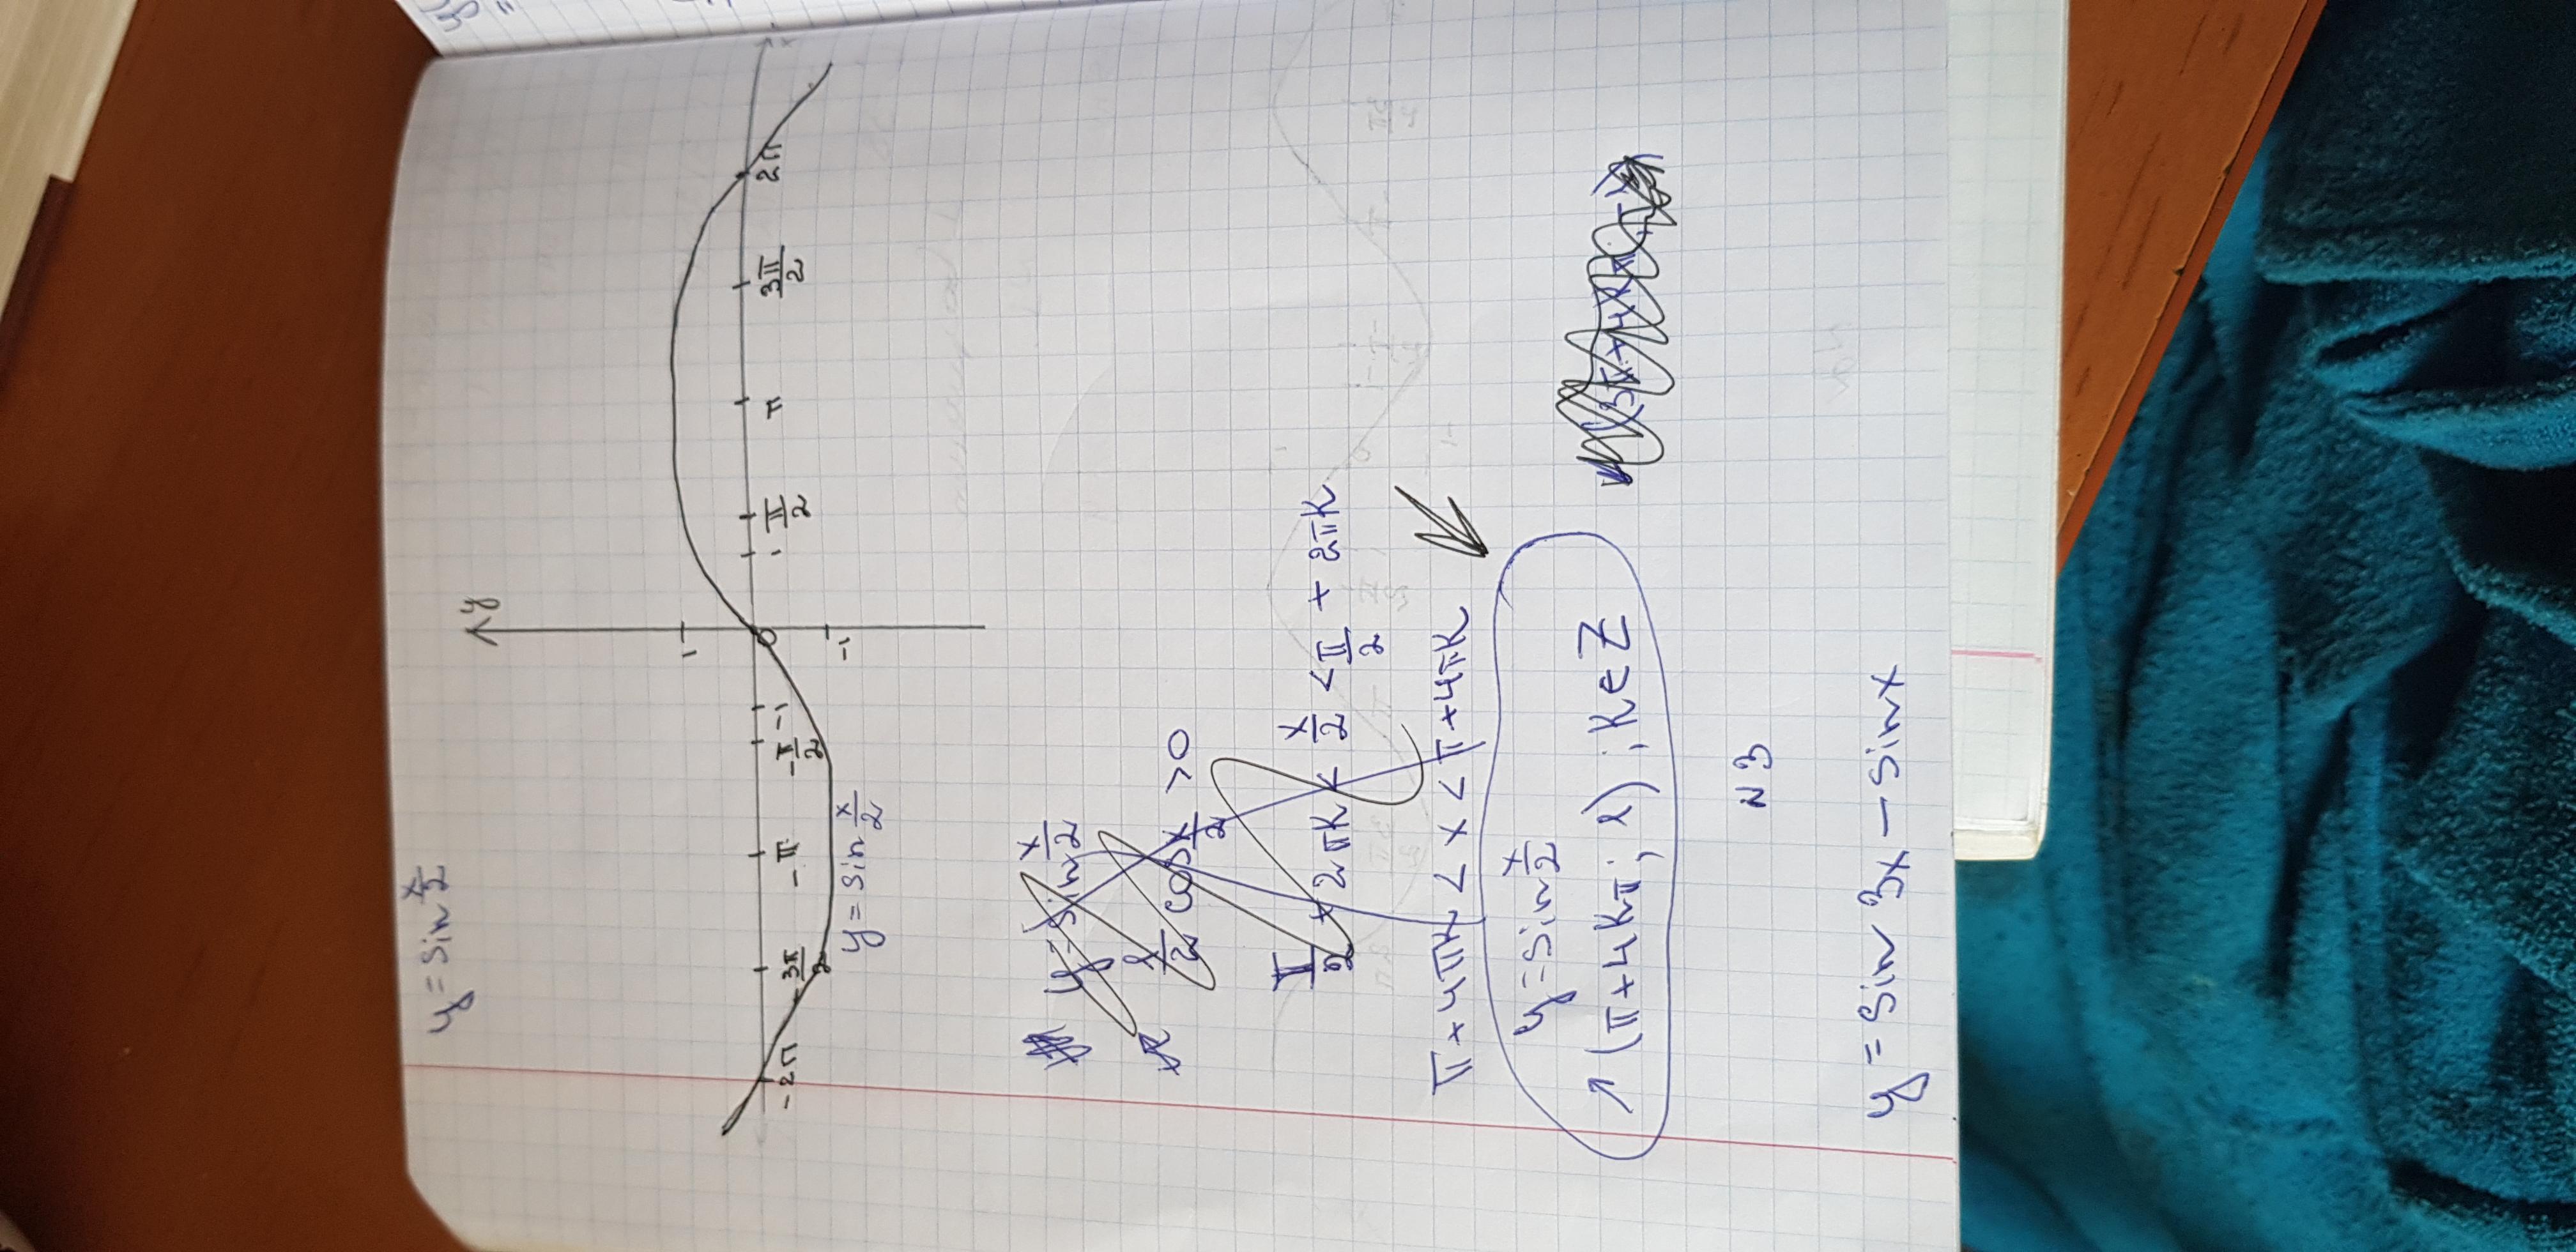 y = sin x/2
y
1
-2π -3π/2 -π -π/2 -1 0 1 π/2 π 3π/2 2π x
-1
y = sin x/2
y = sin x/2
1/2 cos x/2 > 0
π/2 + 2πK < x/2 < π/2 + 2πK
π + 4πK < x < π + 4πK
y = sin x/2
↗ (π + 4Kπ; λ) ; K ∈ Z
N3
y = sin 3x - sin x